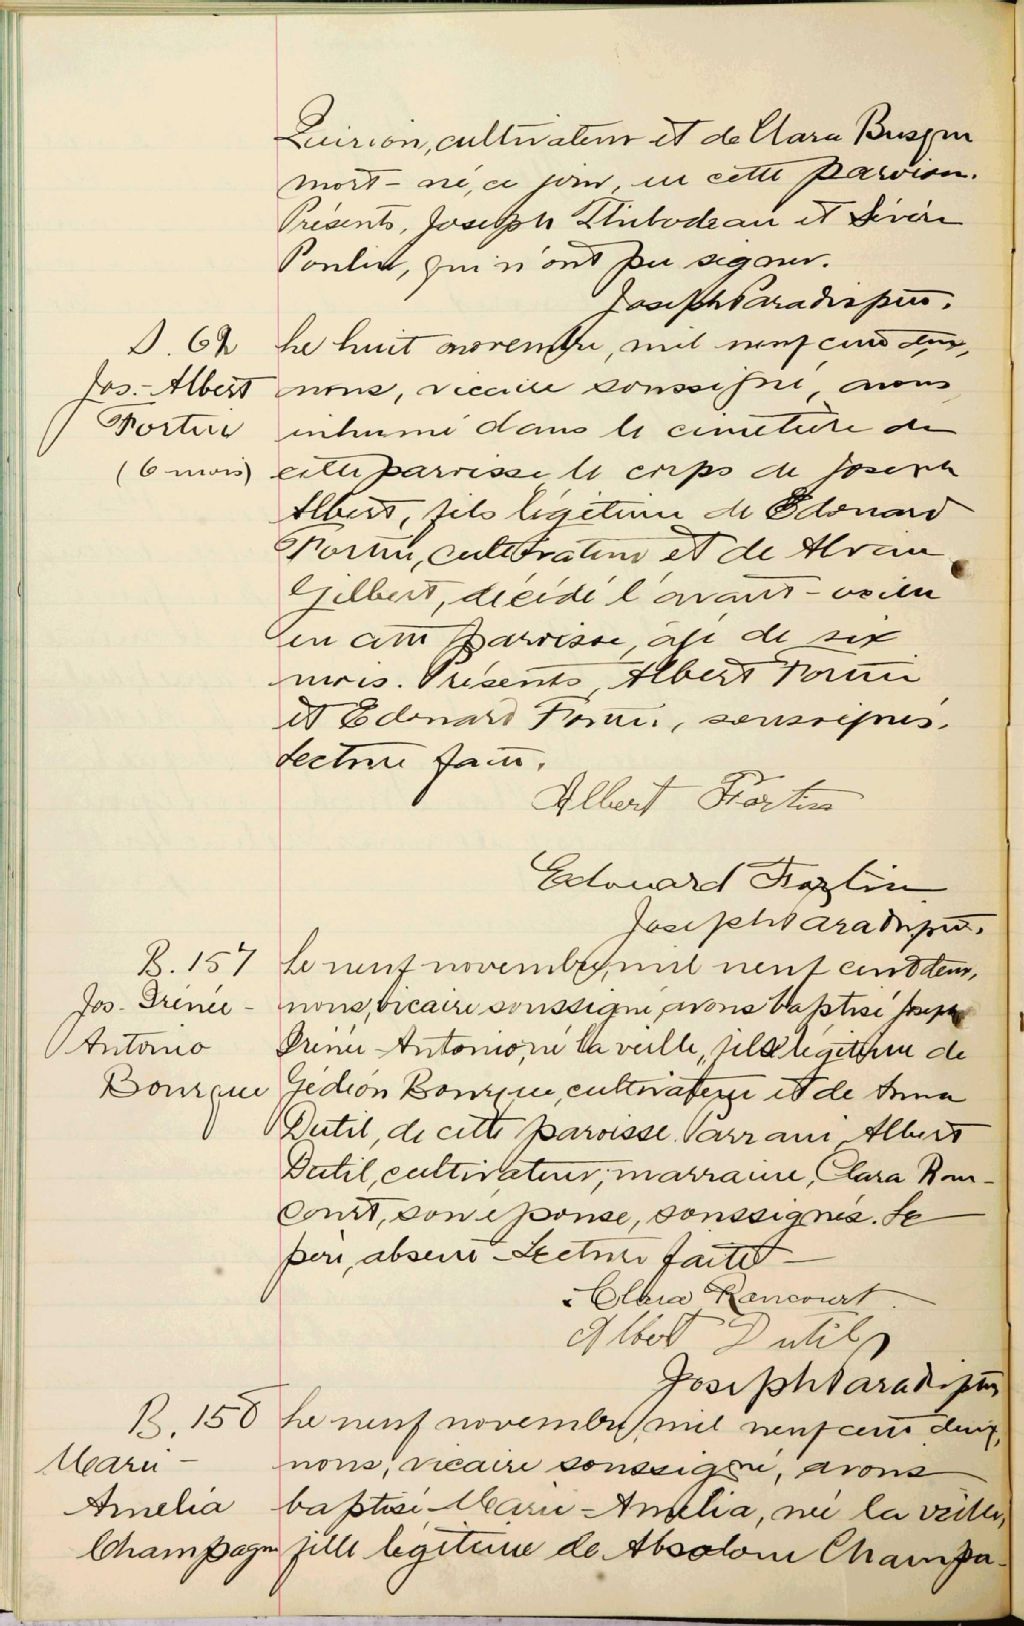 Quirion, cultivateur et de Clara Busque
mort-né, ce jour, en cette paroisse.
Présents, Joseph Thibodeau et Sévérin
Poulin, qui n'ont pu signer.
Joseph Paradis ptre.
S. 62
Jos.-Albert
Fortin
(6 mois)
Le huit novembre, mil neuf cent deux,
nous, vicaire soussigné, avons
inhumé dans le cimetière de
cette paroisse, le corps de Joseph
Albert, fils légitime de Edouard
Fortin, cultivateur et de Alvina
Gilbert, décédé l'avant-veille
en cette paroisse, âgé de six
mois. Présents, Albert Fortin
et Edouard Fortin, soussignés.
Lecture faite.
Albert Fortin
Edouard Fortin
Joseph Paradis ptre.
B. 157
Jos-Irénée-
Antonio
Bourque
Le neuf novembre, mil neuf cent deux,
nous, vicaire soussigné, avons baptisé Joseph
Irénée-Antonio, né la veille, fils légitime de
Gédéon Bourque, cultivateur et de Anna
Dutil, de cette paroisse. Parrain, Albert
Dutil, cultivateur; marraine, Clara Ran-
court, son épouse, soussignés. Le
père, absent-Lecture faite-
Clara Rancourt
Albert Dutil
Joseph Paradis ptre
B. 158
Marie-
Amelia
Champagne
Le neuf novembre, mil neuf cent deux,
nous, vicaire soussigné, avons
baptisé Marie-Amelia, née la veille,
fille légitime de Absolom Champa-